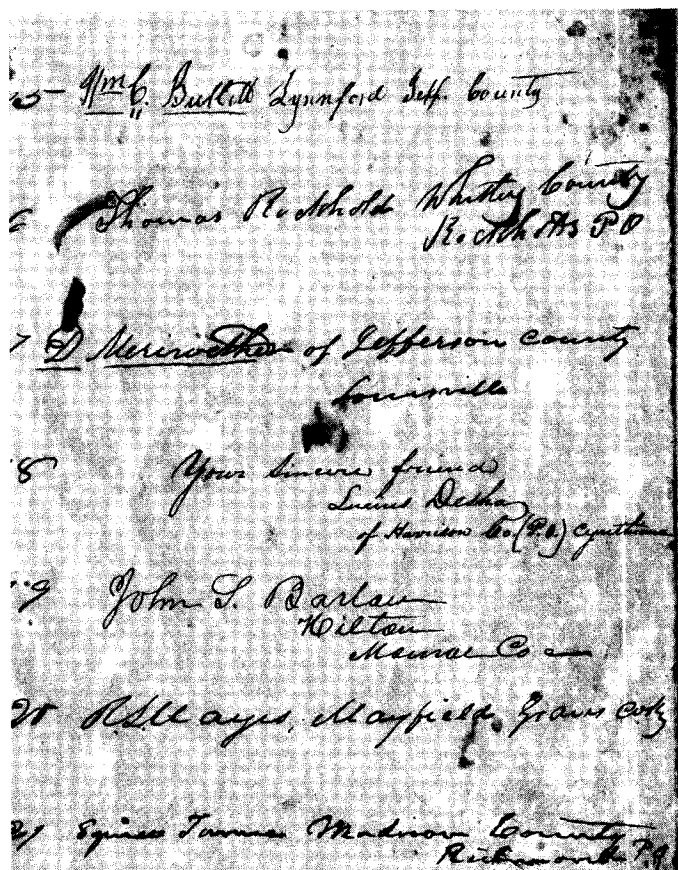 15 Wm C. Bullitt Lynnford Jeff. County
6 Thomas Rockhold Whitley County
Rockholds P O
7 D Meriwether of Jefferson County
Louisville
18 Your Sincere friend
Lucius Desha
of Harrison Co (P.O.) Cynthiana
19 John S. Barlow
Monroe Co
20 R. S. Mayes, Mayfield, Graves Cty
21 Squire Turner Madison County
Richmond P.O